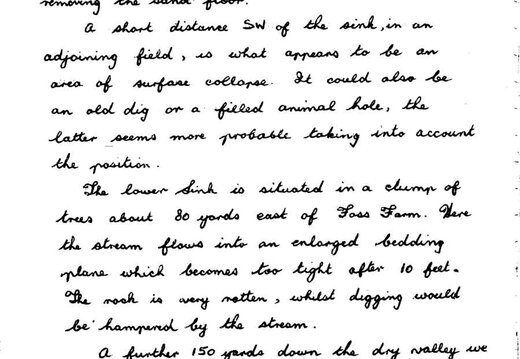 removing the sand floor.
A short distance SW of the sink, in an
adjoining field, is what appears to be an
area of surfase collapse. It could also be
an old dig or a filled animal hole, the
latter seems more probable taking into account
the position.
The lower Sink is situated in a clump of
trees about 80 yards east of Foss Farm. Here
the stream flows into an enlarged bedding
plane which becomes too tight after 10 feet.
The rock is very rotten, whilst digging would
be hampered by the stream.
A further 150 yards down the dry valley we